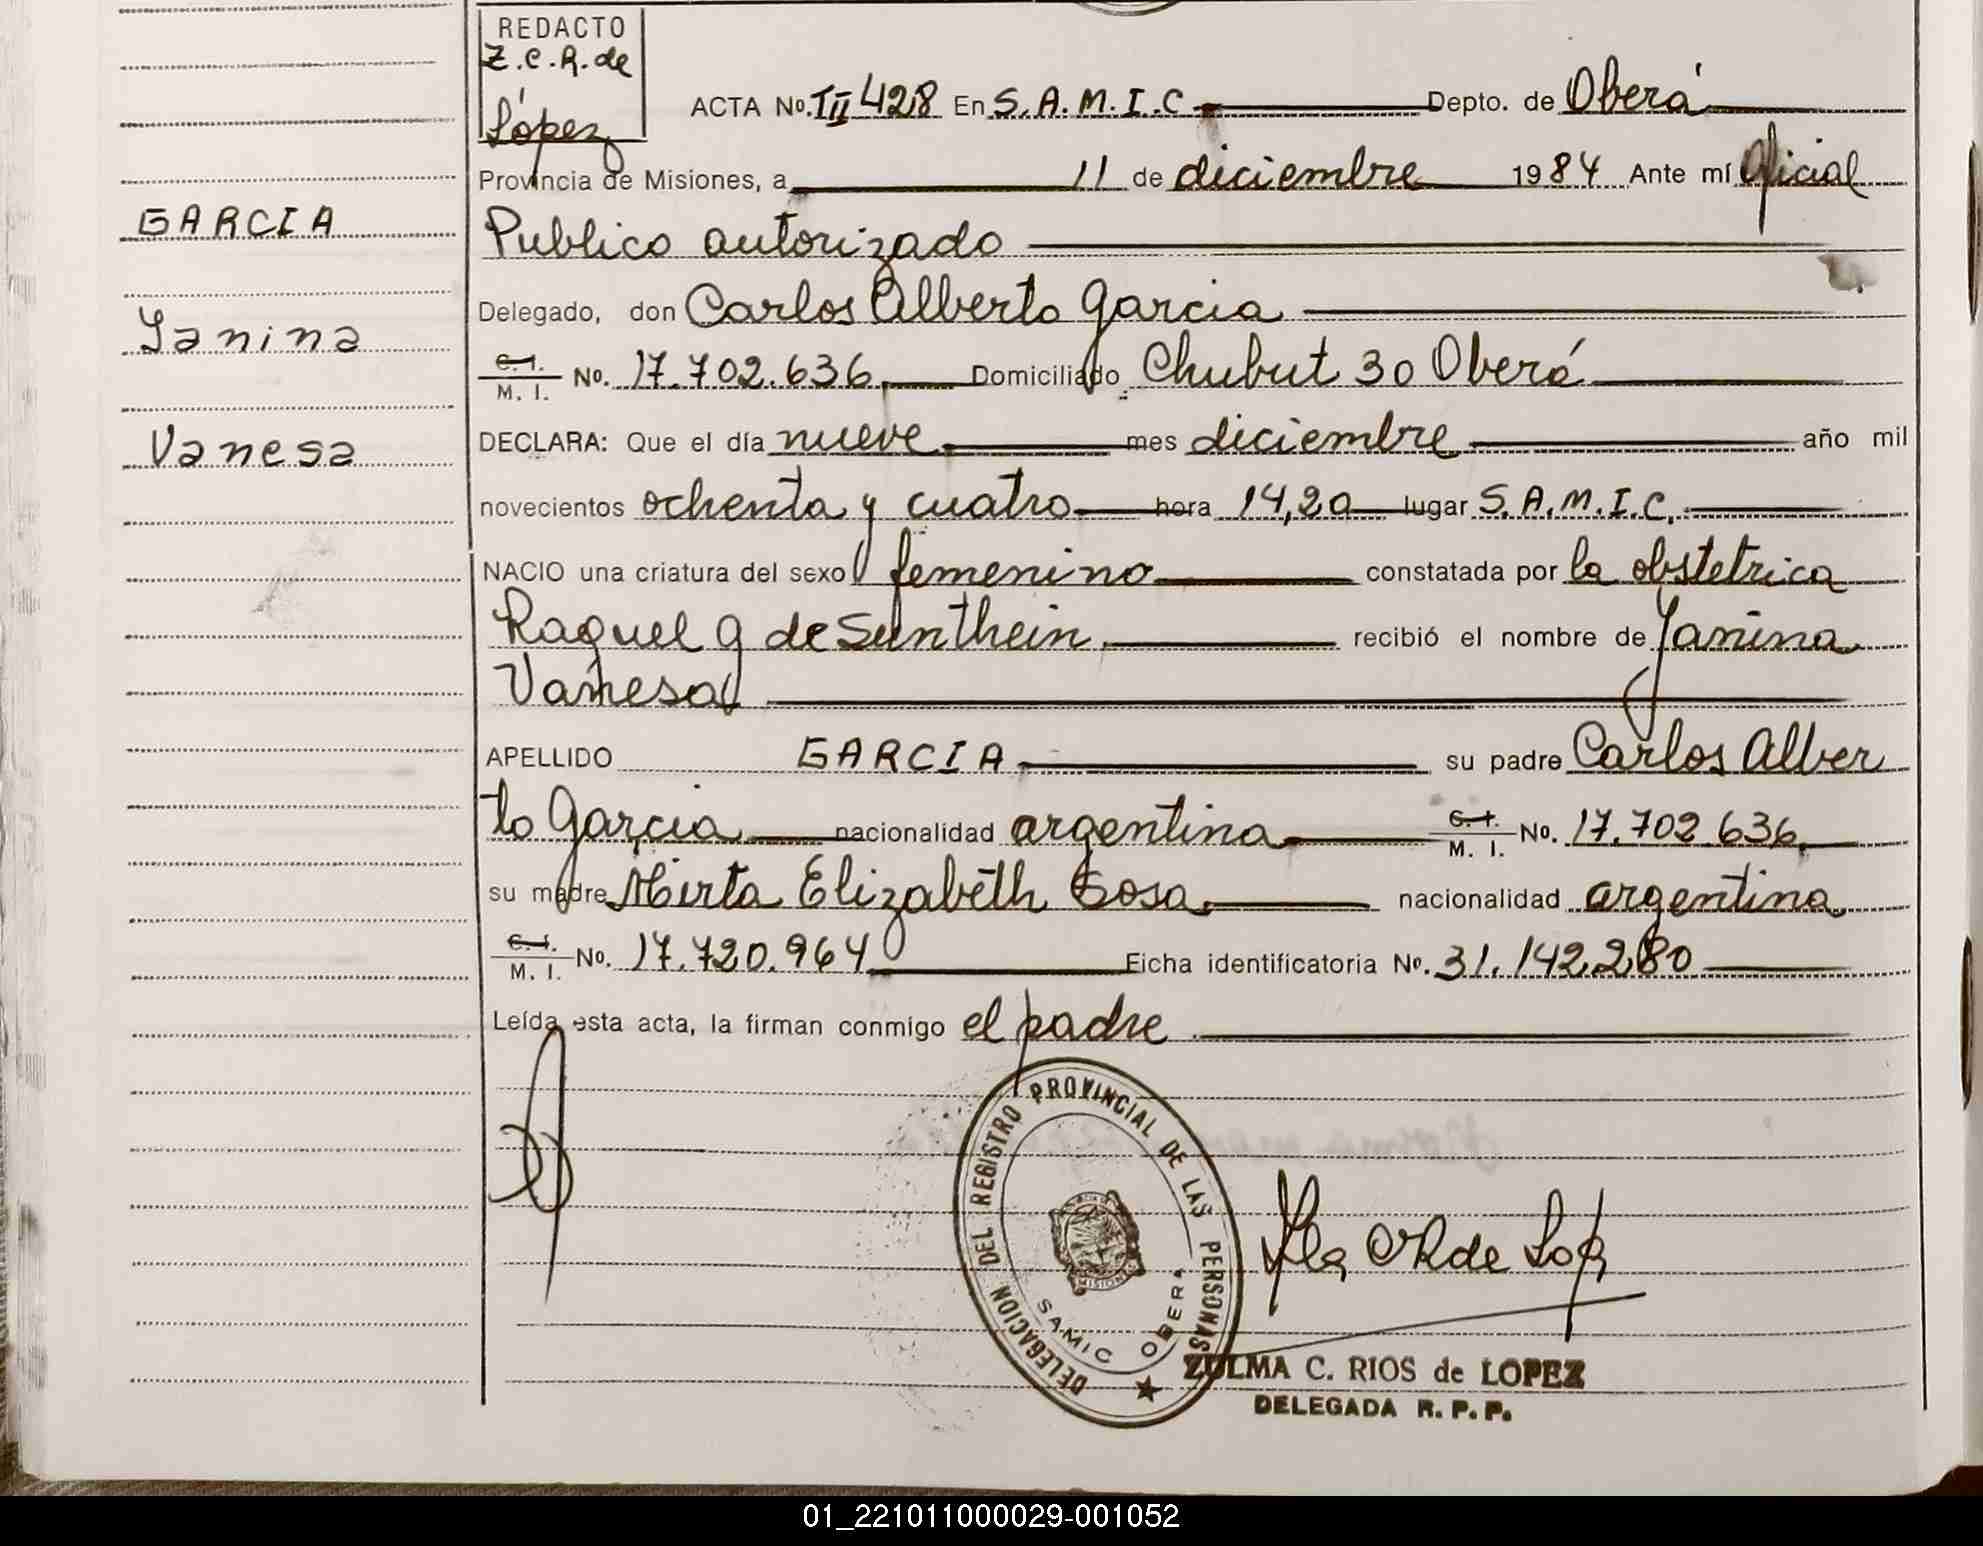 REDACTO
Z.C.R. de
López
ACTA No. III 428 En S.A.M.I.C. Depto. de Oberá
Provincia de Misiones, a 11 de diciembre 1984 Ante mí Oficial
Publico autorizado
Delegado, don Carlos Alberto Garcia
C.I. M. I. No. 17.702.636 Domiciliado Chubut 30 Oberá
DECLARA: Que el día nueve mes diciembre año mil
novecientos ochenta y cuatro hora 14,20 lugar S.A.M.I.C.
NACIO una criatura del sexo femenino constatada por la obstetrica
Raquel G de Sunthein recibió el nombre de Yanina
Vanesa
APELLIDO GARCIA su padre Carlos Alber
to Garcia nacionalidad argentina C.I. M. I. No. 17.702.636
su madre Mirta Elizabéth Sosa nacionalidad argentina
C.I. M. I. No. 17.720.964 Ficha identificatoria No. 31.142.280
Leída esta acta, la firman conmigo el padre
GARCIA
Yanina
Vanesa
DELEGACION DEL REGISTRO PROVINCIAL DE LAS PERSONAS
MISIONES
SAMIC OBERA
ZULMA C. RIOS de LOPEZ
DELEGADA R. P. P.
01_221011000029-001052